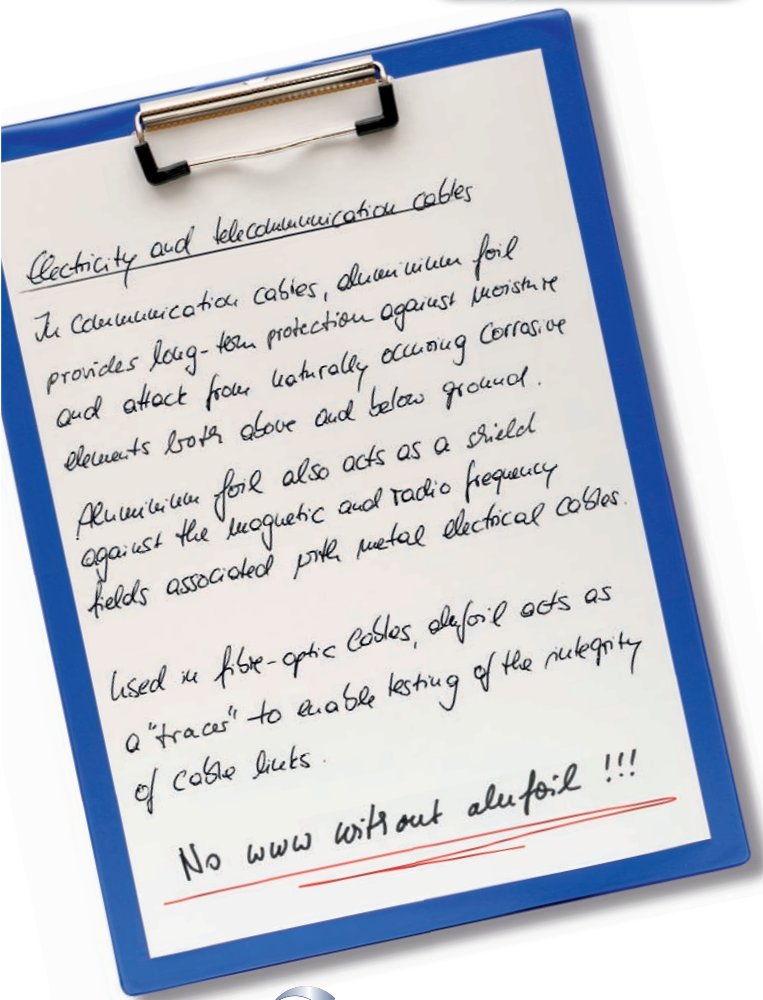 Electricity and telecommunication cables
In communication cables, aluminium foil
provides long-term protection against moisture
and attack from naturally occuring corrosive
elements both above and below ground.
Aluminium foil also acts as a shield
against the magnetic and radio frequency
fields associated with metal electrical cables.
Used in fibre-optic cables, alufoil acts as
a "tracer" to enable testing of the integrity
of cable links.
No www without alufoil !!!